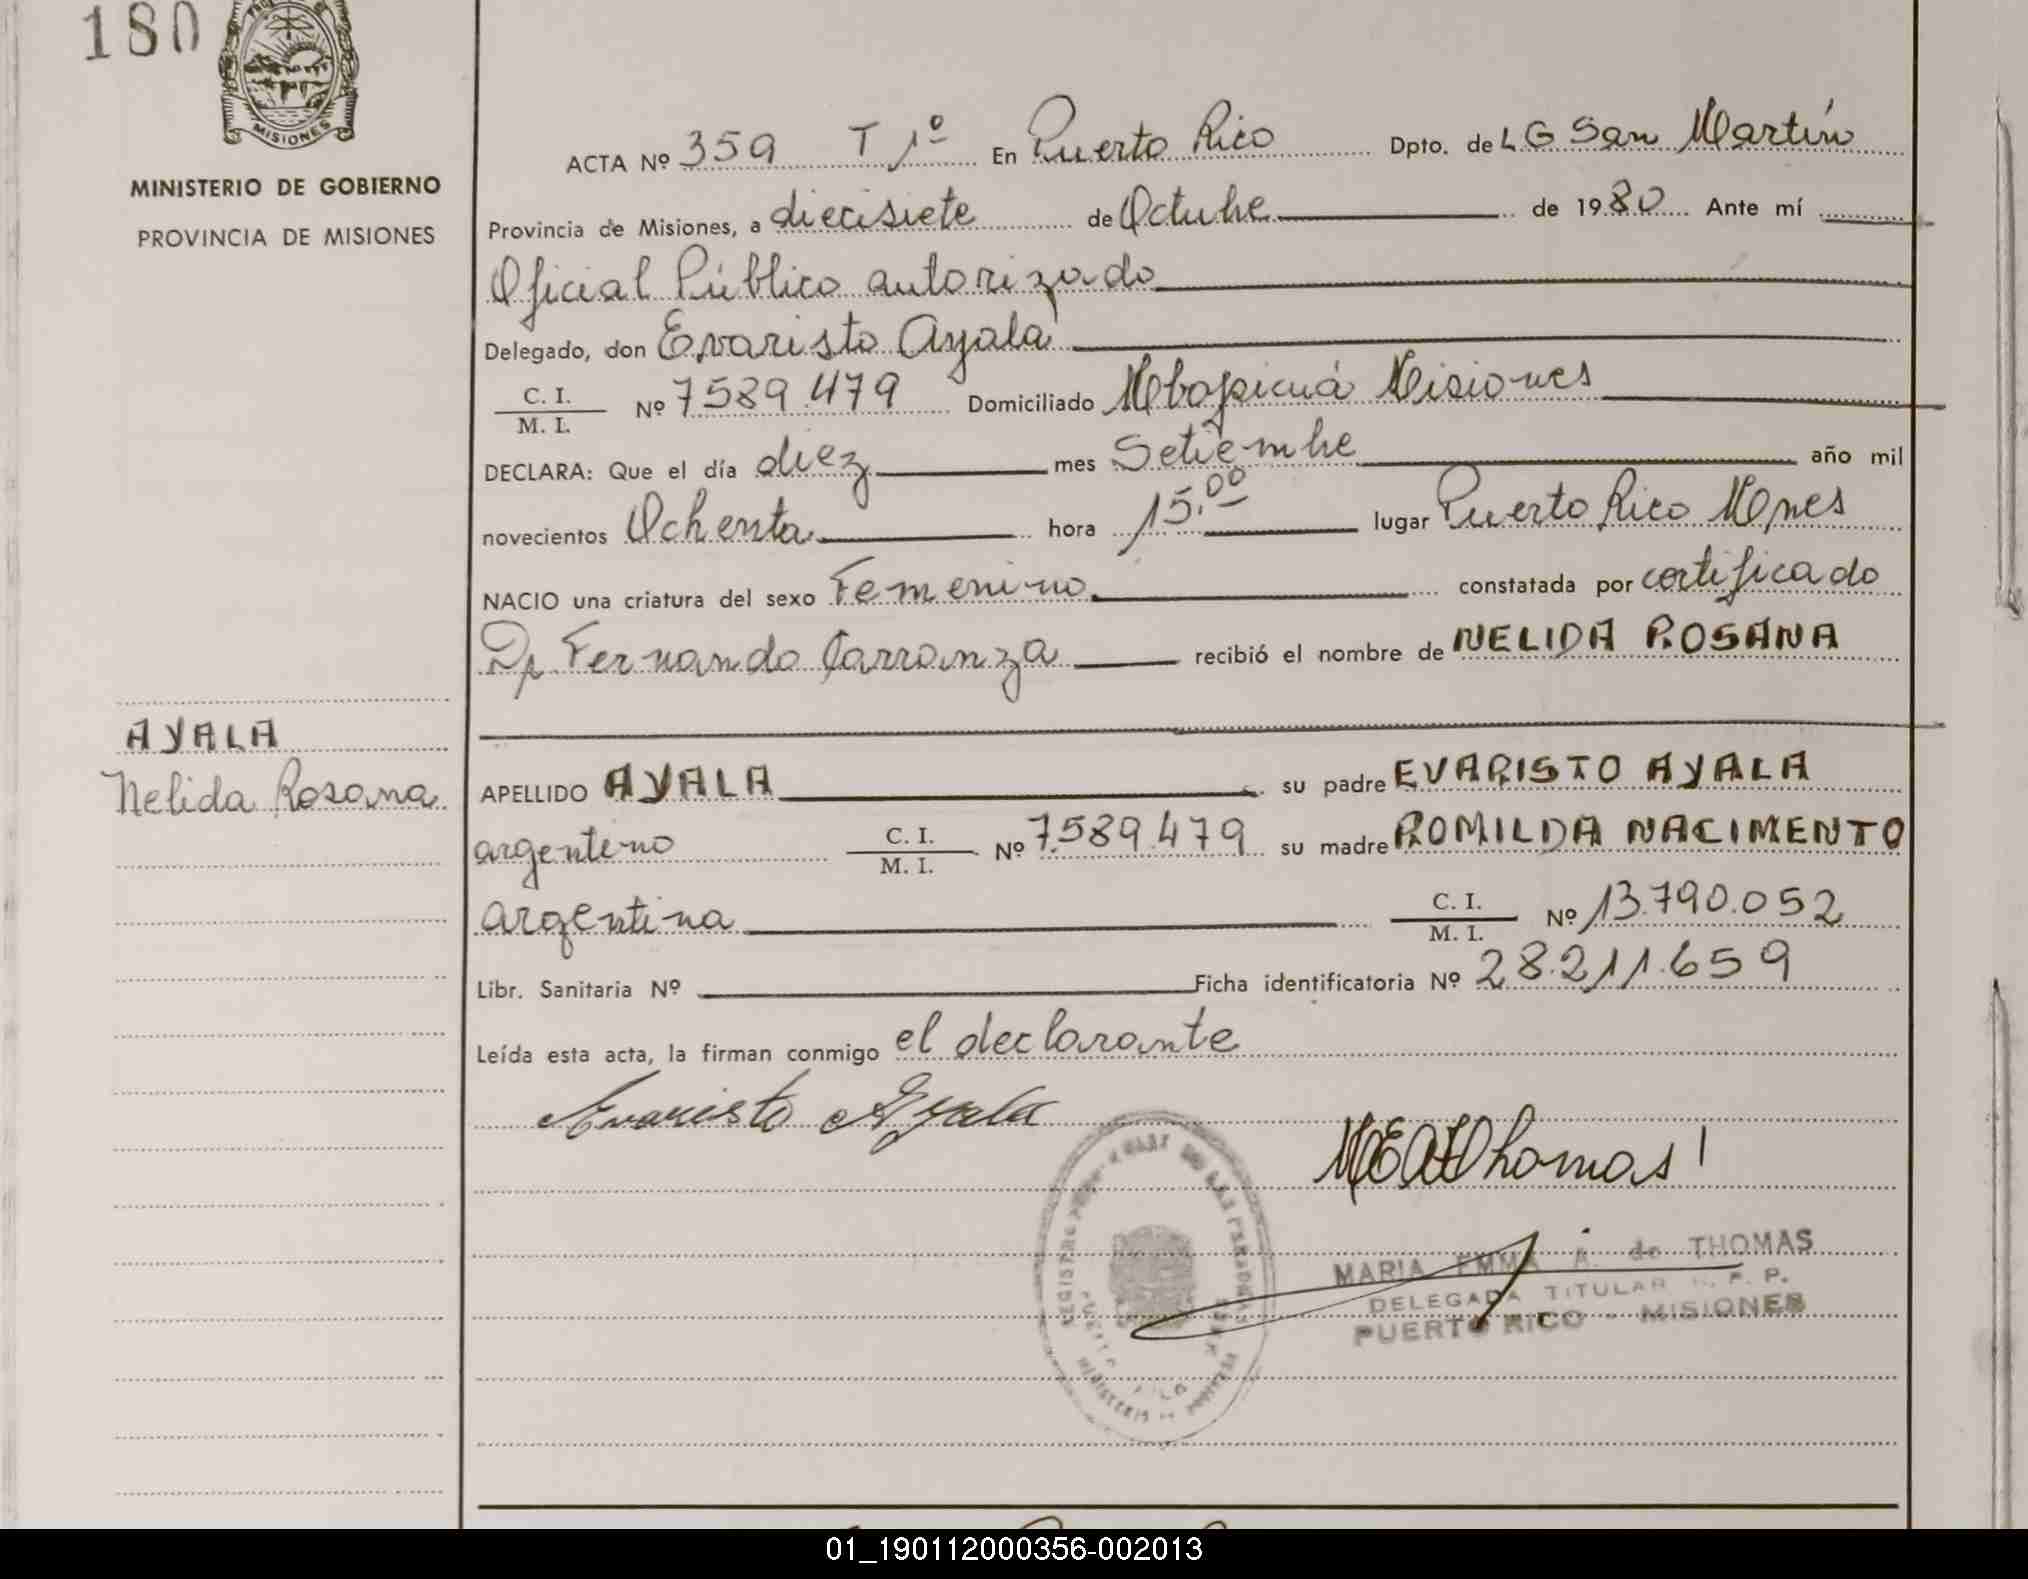 180
MISIONES
MINISTERIO DE GOBIERNO
PROVINCIA DE MISIONES
ACTA Nº 359 T 1º En Puerto Rico Dpto. de L G San Martín
Provincia de Misiones, a diecisiete de Octubre de 1980 Ante mí
Oficial Público autorizado
Delegado, don Evaristo Ayala
C. I.
M. I. Nº 7589.479 Domiciliado Mbopicuá Misiones
DECLARA: Que el día diez mes Setiembre año mil
novecientos Ochenta hora 15.00 lugar Puerto Rico Mnes
NACIO una criatura del sexo Femenino constatada por certificado
Dr Fernando Carranza recibió el nombre de NELIDA ROSANA
AYALA
Nelida Rosana
APELLIDO AYALA su padre EVARISTO AYALA
argentino C. I.
M. I. Nº 7.589.479 su madre ROMILDA NACIMENTO
argentina C. I.
M. I. Nº 13.790.052
Libr. Sanitaria Nº Ficha identificatoria Nº 28.211.659
Leída esta acta, la firman conmigo el declarante
Evaristo Ayala
MEAThomas
MARIA EMMA A. de THOMAS
DELEGADA TITULAR R. P.
PUERTO RICO - MISIONES
01_190112000356-002013